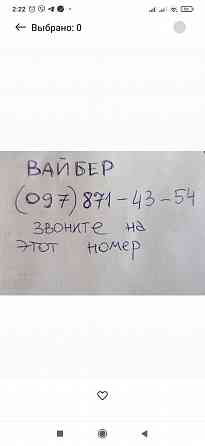 2:22
Выбрано: 0
ВАЙБЕР
(097) 871-43-54
звоните на
этот номер